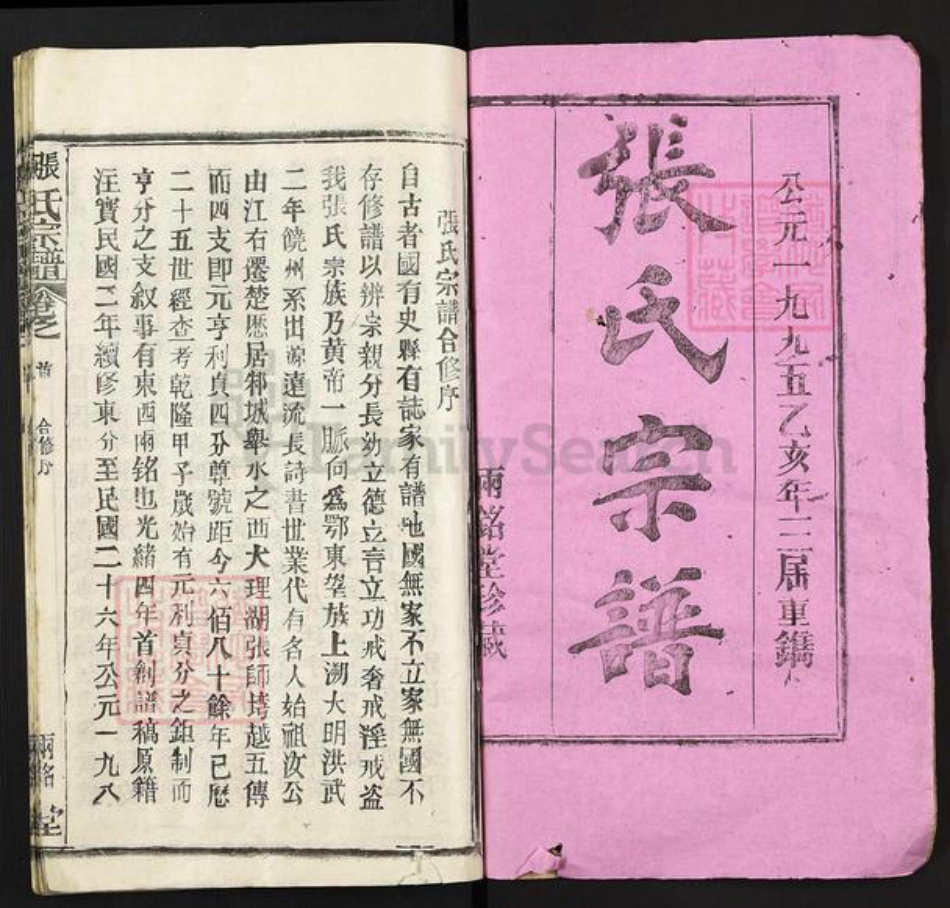 公元一九九五乙亥年三屆重鐫
張氏宗譜
兩銘堂珍藏
張氏宗譜合修序
自古者國有史縣有誌家有譜也國無家不立家無國不
存修譜以辨宗親分長幼立德立言立功戒奢戒淫戒盗
我張氏宗族乃黄帝一脈向爲鄂東望族上溯大明洪武
二年饒州系出源遠流長詩書世業代有名人始祖汝公
由江右遷楚厯居邾城舉水之西大理湖張師塆越五傳
而四支即元亨利貞四分尊號距今六佰八十餘年已歷
二十五世經查考乾隆甲子歲始有元利貞分之鉅制而
亨分之支叙事有東西兩銘也光緒四年首創譜稿原籍
汪實民國二年續修東分至民國二十六年公元一九八
張氏宗譜
卷之
首
合修序
兩銘堂
FamilySearch